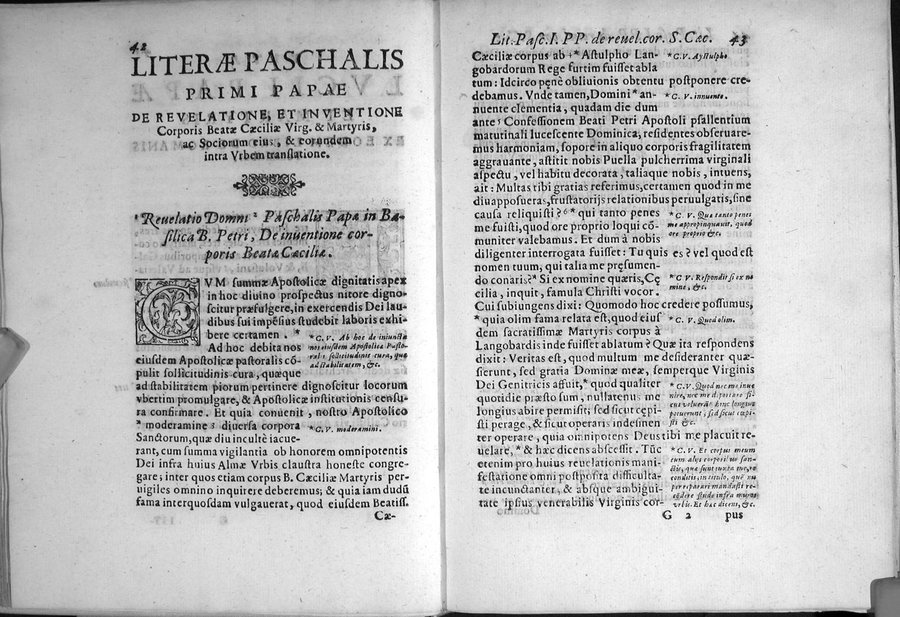 42
LITERÆ PASCHALIS
PRIMI PAPAE
DE REVELATIONE, ET INVENTIONE
Corporis Beatæ Cæciliæ Virg. & Martyris,
ac Sociorum eius, & eorundem
intra Vrbem translatione.
Reuelatio Domni Paschalis Papæ in Ba-
silica B. Petri, De inuentione cor-
poris Beatæ Cæciliæ.
CVM summæ Apostolicæ dignitatis apex
in hoc diuino prospectus nitore digno-
scitur præfulgere, in exercendis Dei lau-
dibus sui impēsius studebit laboris exhi-
bere certamen.
Ad hoc debita nos
eiusdem Apostolicæ pastoralis cō-
pulit sollicitudinis cura, quæque
* C. V. Ab hoc de iniuncta
nos eiusdem Apostolica Pasto-
ralis sollicitudinis cura, quæ
ad stabilitatem, &c.
ad stabilitatem piorum pertinere dignoscitur locorum
vbertim promulgare, & Apostolicæ institutionis censu-
ra confirmare. Et quia conuenit, nostro Apostolico
* moderamine diuersa corpora
Sanctorum, quæ diu incultè iacue-
* C. V. moderamini.
rant, cum summa vigilantia ob honorem omnipotentis
Dei infra huius Almæ Vrbis claustra honestè congre-
gare; inter quos etiam corpus B. Cæciliæ Martyris per-
uigiles omnino inquirere deberemus; & quia iam dudū
fama interquosdam vulgauerat, quod eiusdem Beatiss.
Cæ-
Lit. Pasc. I. PP. de reuel. cor. S. Cæc. 43
Cæciliæ corpus ab * Astulpho Lan-
gobardorum Rege furtim fuisset abla
* C. V. Aystulpho
tum: Idcirco penè obliuionis obtentu postponere cre-
debamus. Vnde tamen, Domini * an-
nuente clementia, quadam die dum
* C. V. innuente.
ante Confessionem Beati Petri Apostoli psallentium
matutinali lucescente Dominica, residentes obseruare-
mus harmoniam, sopore in aliquo corporis fragilitatem
aggrauante, astitit nobis Puella pulcherrima virginali
aspectu, vel habitu decorata, taliaque nobis, intuens,
ait: Multas tibi gratias referimus, certamen quod in me
diu apposueras, frustatorijs relationibus peruulgatis, sine
causa reliquisti? * qui tanto penes
me fuisti, quod ore proprio loqui cō-
muniter valebamus. Et dum à nobis
* C. V. Qua tanto penes
me appropinquauit, quod
ore proprio &c.
diligenter interrogata fuisset: Tu quis es? vel quod est
nomen tuum, qui talia me præsumen-
do conaris? * Si ex nomine quæris, Cę
cilia, inquit, famula Christi vocor.
* C. V. Respondit si ex no
mine, &c.
Cui subiungens dixi: Quomodo hoc credere possumus,
* quia olim fama relata est, quod eius
dem sacratissimæ Martyris corpus à
* C. V. Quod olim.
Langobardis inde fuisset ablatum? Quæ ita respondens
dixit: Veritas est, quod multum me desideranter quæ-
sierunt, sed gratia Dominæ meæ, semperque Virginis
Dei Genitricis affuit, * quod qualiter
quotidie præsto sum, nullatenus me
longius abire permisit; sed sicut cępi-
sti perage, & sicut operaris indesinen
* C. V. Quod nec me inue
nire, nec me deportare si-
cut voluerāt hinc longius
potuerunt, sed sicut cæpi-
sti &c.
ter operare, quia omnipotens Deus tibi me placuit re-
uelare, * & hæc dicens abscessit. Tūc
etenim pro huius reuelationis mani-
festatione omni postposita difficulta-
te incunctanter, & absque ambigui-
tate ipsius venerabilis Virginis cor-
* C. V. Et corpus meum
G 2 pus